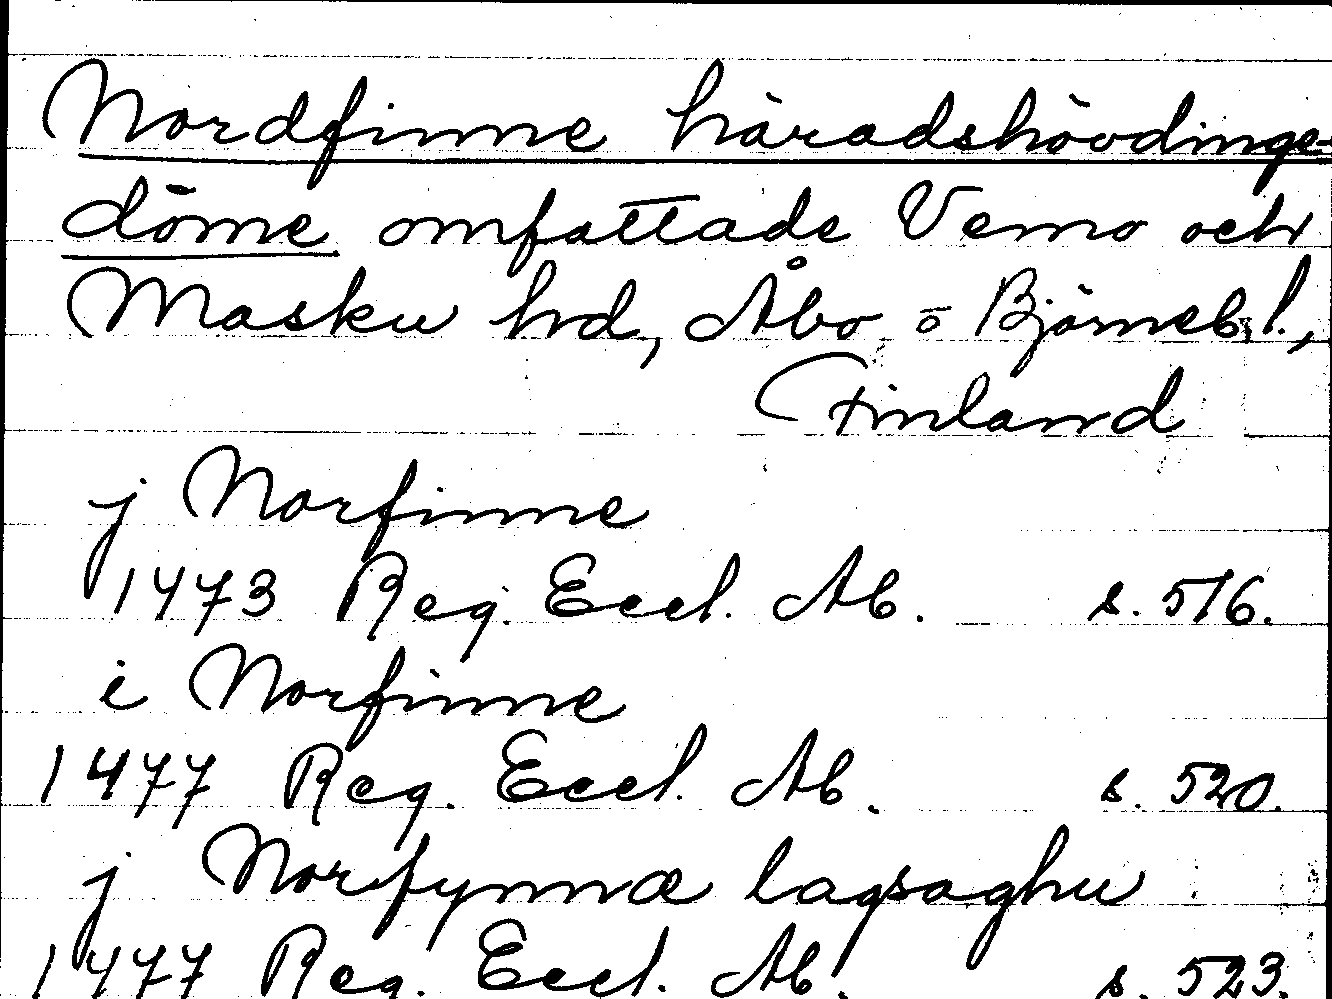 Nordfinne häradshövdinge-
döme omfattade Vemo och
Masku hd, Åbo o Björneb. l.,
Finland
j Norfinne
1473 Reg. Eccl. Ab. s. 516.
i Norfinne
1477 Reg. Eccl. Ab. s. 520.
j Norfynnæ lagsaghu
1477 Reg. Eccl. Ab. s. 523.